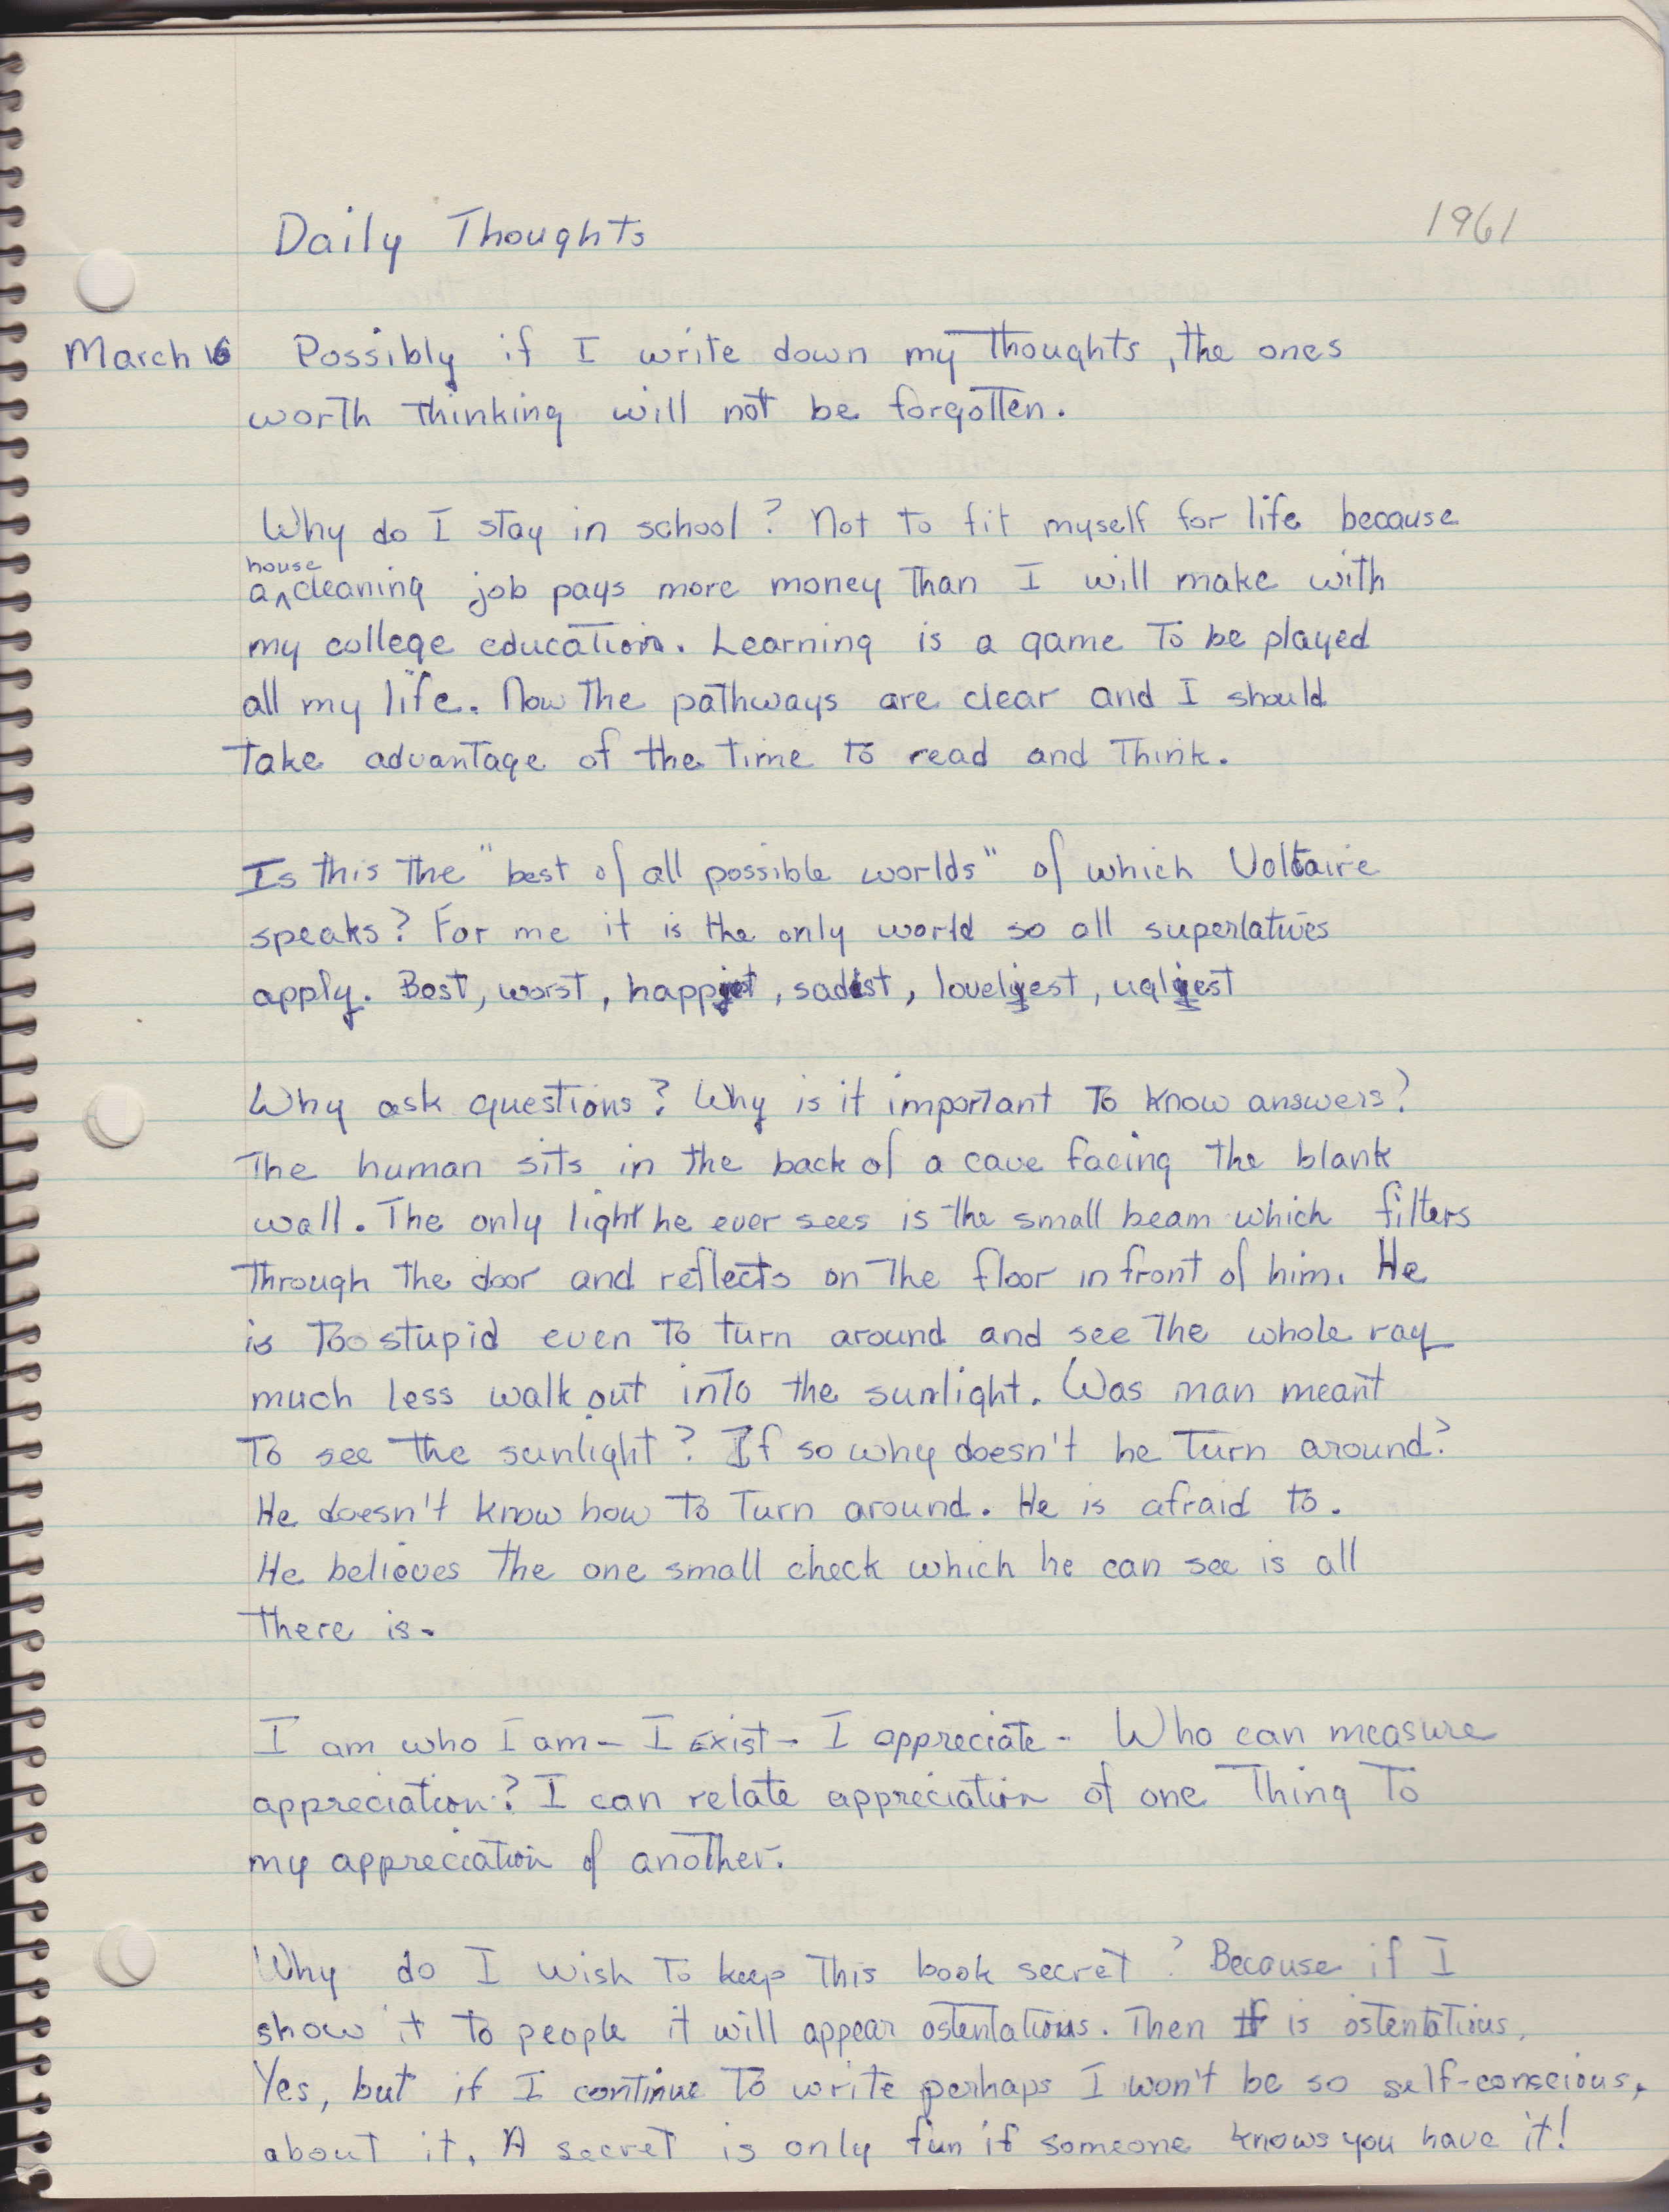 Daily Thoughts
1961
March 16 Possibly if I write down my thoughts, the ones
worth thinking will not be forgotten.
Why do I stay in school? Not to fit myself for life because
a house cleaning job pays more money than I will make with
my college education. Learning is a game to be played
all my life. Now the pathways are clear and I should
take advantage of the time to read and think.
Is this the "best of all possible worlds" of which Voltaire
speaks? For me it is the only world so all superlatives
apply. Best, worst, , , lovelyest, uglyest
Why ask questions? Why is it important to know answers?
The human sits in the back of a cave facing the blank
wall. The only light he ever sees is the small beam which filters
through the door and reflects on the floor in front of him. He
is too stupid even to turn around and see the whole ray
much less walk out into the sunlight. Was man meant
to see the sunlight? If so why doesn't he turn around?
He doesn't know how to turn around. He is afraid to.
He believes the one small check which he can see is all
there is.
I am who I am - I exist - I appreciate - Who can measure
appreciation? I can relate appreciation of one thing to
my appreciation of another.
Why do I wish to keep this book secret? Because if I
show it to people it will appear ostentatious. Then it is ostentatious.
Yes, but if I continue to write perhaps I won't be so self-conscious,
about it. A secret is only fun if someone knows you have it!